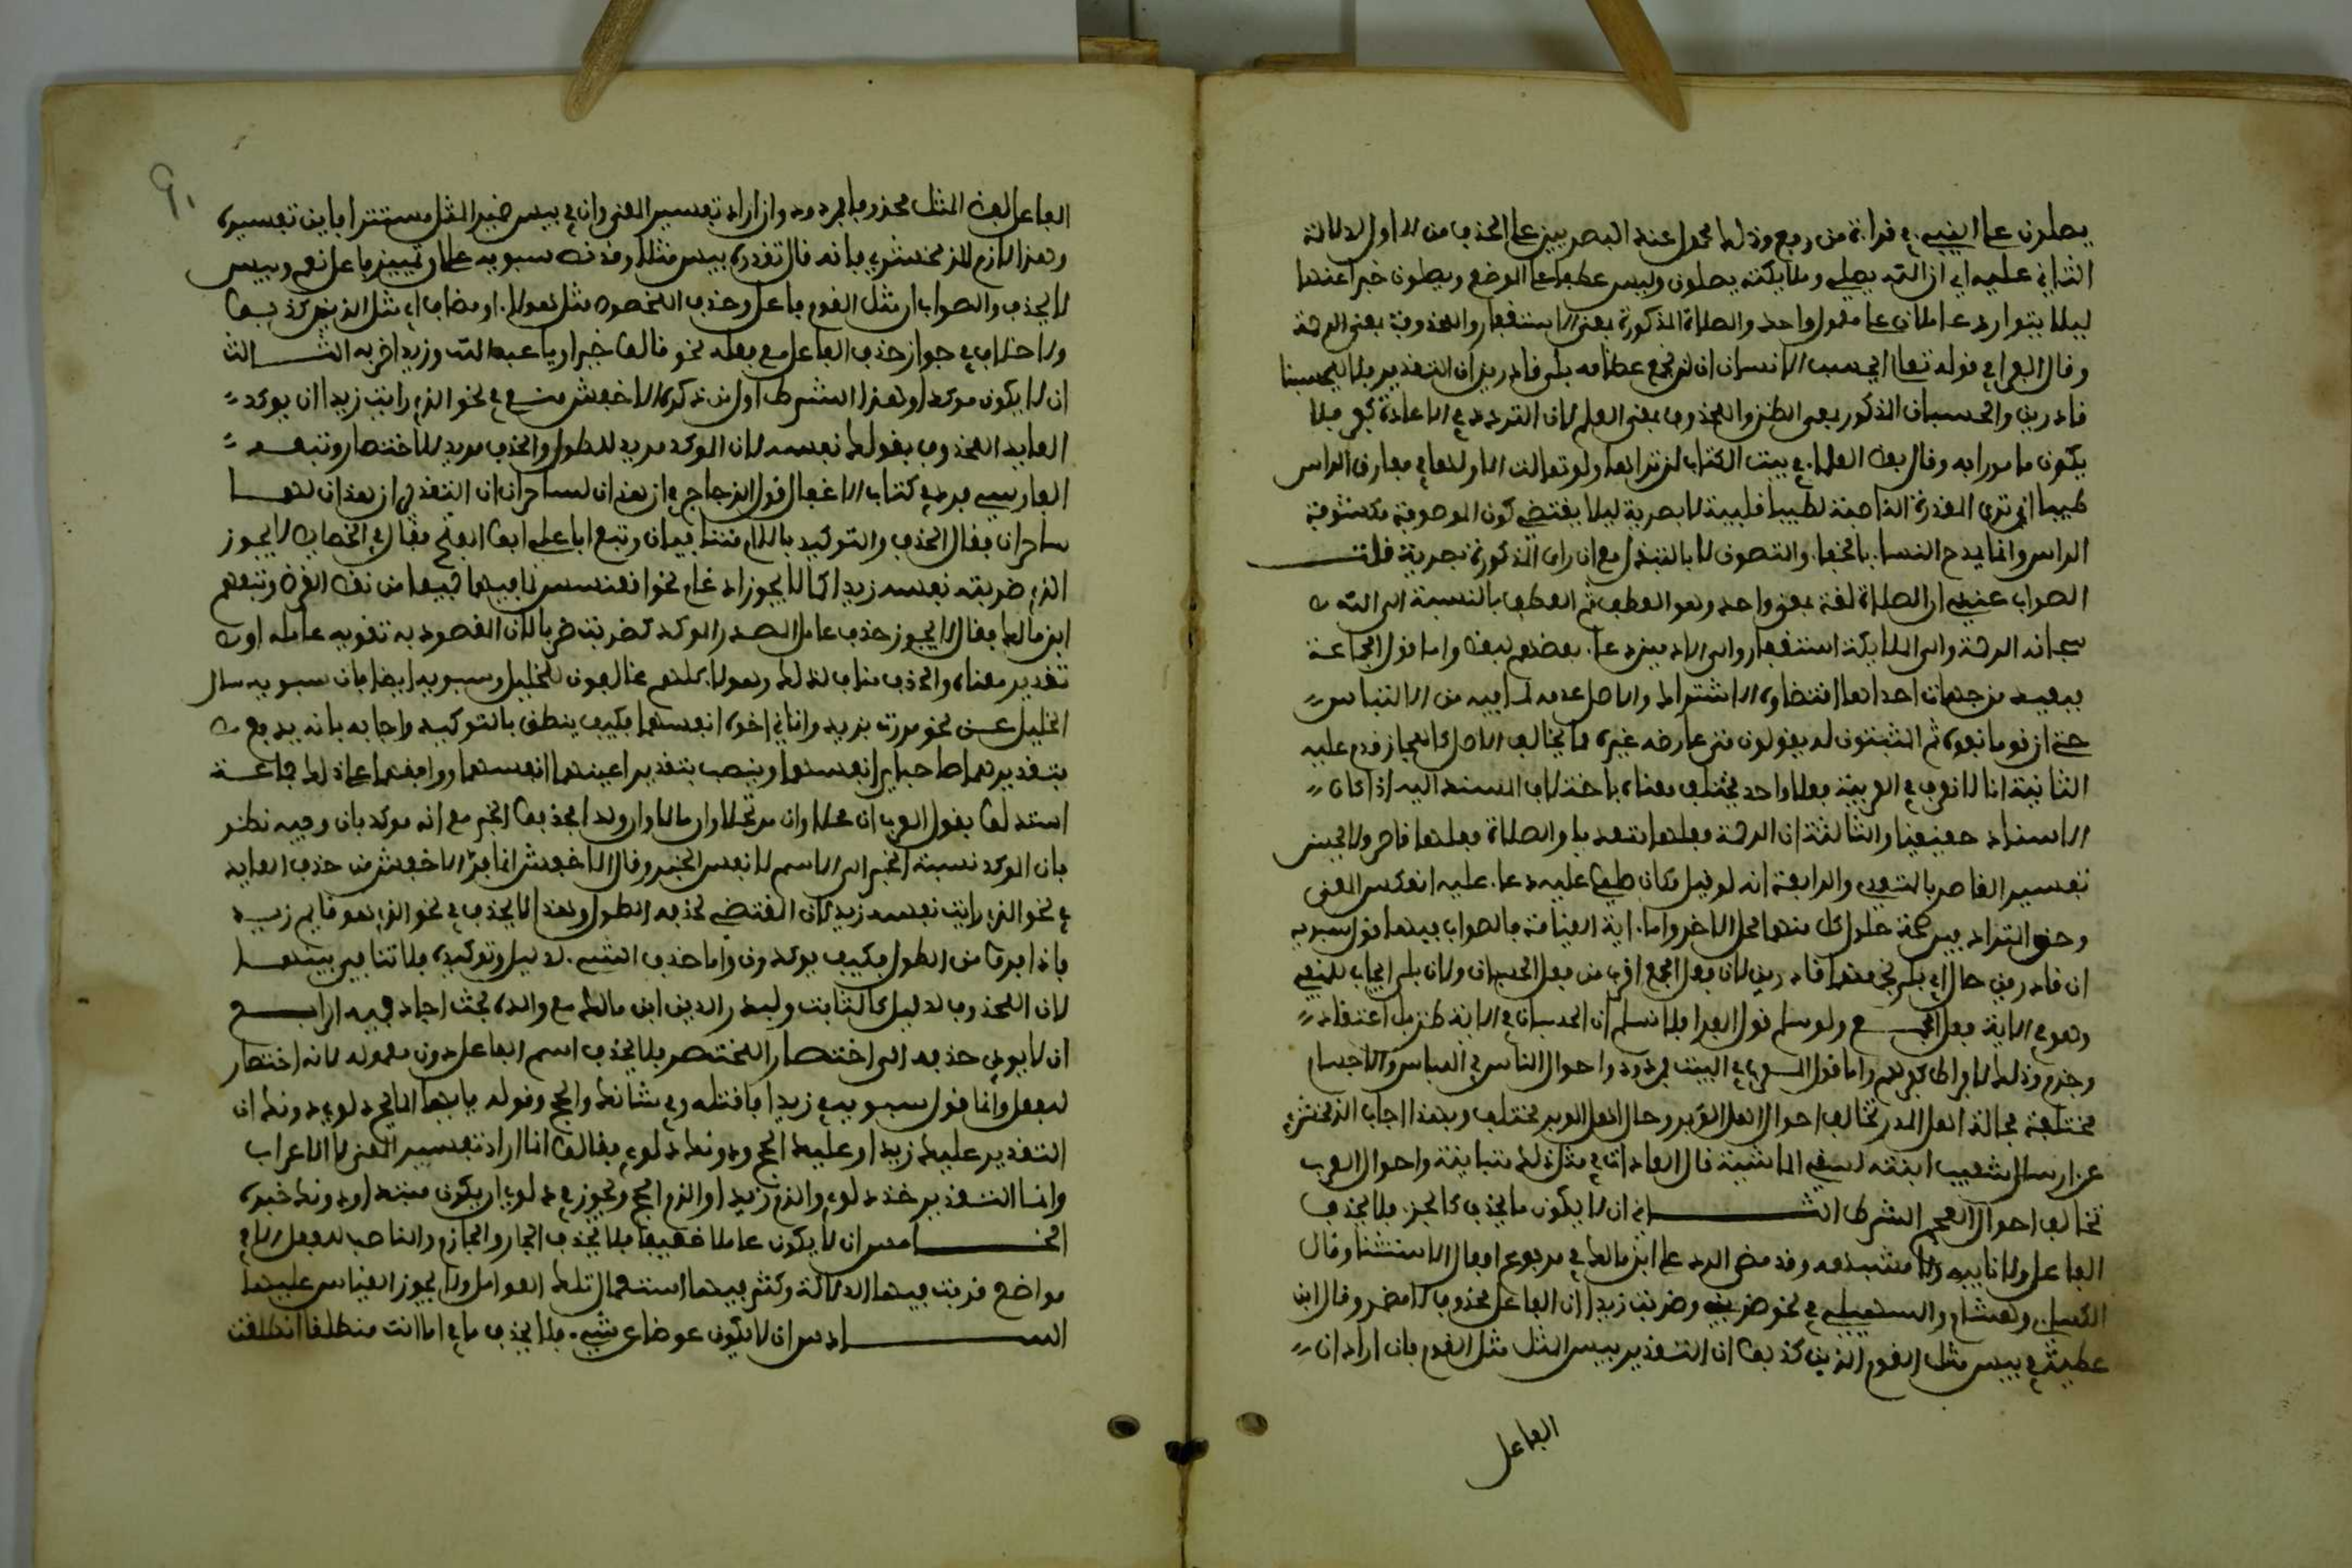 يصلون على النبيء في قراءة من رفع وذلك محمول عند البصريين على الحذف من الاول لدلالة
الثاني عليه اي ان الله يصلي وملايكته يصلون وليس عطفا على الموضع ويصلون خبرا عنهما
ليلا يتوارد عاملان على معمول واحد والصلاة المذكورة بمعنى الاستغفار والمحذوفة بمعنى الرحمة
وقال الفراء في قوله تعالى ايحسب الانسان ان لن نجمع عظامه بلى قادرين ان التقدير بلى ليحسبنا
قادرين والحسبان المذكور بمعنى الظن والمحذوف بمعنى العلم لان التردد في الاعادة كفر فلا
يكون مامورا به وقال بعض العلماء في بيت الكتاب لن تراها ولو تاملت الا ولها في مفارق الراس
طيبا ان ترى المقدرة الناصبة لطيبا قلبية لا بصرية ليلا يقتضي كون الموصوفة مكشوفة
الراس وانما يمدح النساء بالخفا والتصون لا بالتبذل مع ان راى المذكورة بصرية قلت
الصواب عندي ان الصلاة لغة بمعنى واحد وهو العطف ثم العطف بالنسبة الى الله
سبحانه الرحمة والى الملايكة استغفار والى الادميين دعاء بعضهم لبعض واما قول الجماعة
فبعيد من جهات احداها اقتضاوه الاشتراك والاصل عدمه لما فيه من الالباس
حتى ان قوما نفوه ثم المثبتون له يقولون متى عارضه غيره مما يخالف الاصل كالمجاز قدم عليه
الثانية انا لا نعرف في العربية فعلا واحد يختلف معناه باختلاف المسند اليه اذا كان
الاسناد حقيقيا والثالثة ان الرحمة فعلها متعد يا والصلاة فعلها قاصر ولا يحسن
تفسير القاصر بالمتعدي والرابعة انه لو قيل مكان صلى عليه دعا عليه انعكس المعنى
وحق المترادفين صحة حلول كل منهما محل الاخر واما اية القيامة فالصواب فيها قول سيبويه
ان قادرين حال اي بلى نجمعها قادرين لان فعل الجمع اقرب من فعل الحسبان ولان بلى ايجاب للمنفي
وهو في الاية فعل الجمع ولو سلم قول الفراء فلا نسلم ان الحسبان في الاية ظن بل اعتقاد
وجزم وذلك لافراط كفرهم واما قول المعرب في البيت فمردود واحوال الناس في اللباس والاحتشام
مختلفة فحال اهل المدر تخالف احوال اهل الوبر وحال اهل الوبر مختلف وبهذا اجاب الزمخشري
عن ارسال شعيب ابنتيه لسقي الماشية قال العادات في مثل ذلك متباينة واحوال العرب
تخالف احوال العجم الشرط الثاني ان لا يكون ما يحذف كالجزء فلا يحذف
الفاعل ولا نايبه ولا مشبهه وقد مضى الرد على ابن مالك في مرفوع افعال الاستثنا وقال
الكساي وهشام والسهيلي في نحو ضربني وضربت زيدا ان الفاعل محذوف لا مضمر وقال ابن
عطية في بيس مثل القوم الذين كذبوا ان التقدير بيس المثل مثل القوم فان اراد ان
الفاعل
الفاعل لفظ المثل محذوفا فمردود وان اراد تفسير المعنى وان في بيس ضمير المثل مستترا فاين تفسيره
وهذا لازم للزمخشري فانه قال تقديره بيس مثلا وقد نص سيبويه على ان تمييز فاعل نعم وبيس
لا يحذف والصواب ان مثل القوم فاعل وحذف المخصوص مثل هولاء او مضاف اي مثل الذين كذبوا
ولا خلاف في جواز حذف الفاعل مع فعله نحو قالوا خيرا ويا عبد الله وزيدا ضربه الثالث
ان لا يكون موكدا وهذا الشرط اول من ذكره الاخفش منع في نحو الذي رايت زيدا ان يوكد
العايد المحذوف بقولك نفسه لان الموكد مريد للطول والحذف مريد للاختصار وتبعه
الفارسي فرد في كتاب الاغفال قول الزجاج في ان هذان لساحران ان التقدير ان هذان لهما
ساحران فقال الحذف والتوكيد باللام متنافيان وتبع ابا علي ابو الفتح فقال في الخصايص لا يجوز
الذي ضربته نفسه زيد كما لا يجوز ادغام نحو اقعنسس لما فيهما جميعا من نقض الغرض وتبعهم
ابن مالك فقال لا يجوز حذف عامل المصدر الموكد كضربت ضربا لان المقصود به تقوية عامله او
تقدير معناه والحذف مناف لذلك وهولاء كلهم مخالفون للخليل وسيبويه ايضا فان سيبويه سال
الخليل عن نحو مررت بزيد واتاني اخوه انفسهما كيف ينطق بالتوكيد فاجابه بانه يرفع
بتقدير هما صاحباي انفسهما وينصب بتقدير اعنيهما انفسهما ووافقهما على ذلك جماعة
استدلوا بقول العرب ان محلا وان مرتحلا وان مالا وان ولدا فحذفوا الخبر مع انه موكد بان وفيه نظر
فان الموكد نسبة الخبر الى الاسم لا نفس الخبر وقال الاخفش انما فر الاخفش من حذف العايد
في نحو الذي رايت نفسه زيد لان المقتضي لحذفه الطول ولهذا لا يحذف في نحو الذي هو قايم زيد
فاذا فروا من الطول فكيف يوكدون واما حذف الشيء لدليل وتوكيده فلا تنافي بينهما
لان المحذوف لدليل كالثابت ولبدر الدين ابن مالك مع والده بحث اجاد فيه الرابع
ان لا يودي حذفه الى اختصار المختصر فلا يحذف اسم الفاعل دون معموله لانه اختصار
للفعل واما قول سيبويه في زيدا فاقتله وفي شانك والحج وقوله يايها المايح دلوي دونكا ان
التقدير عليك زيدا وعليك الحج ودونك دلوي فقالوا انما اراد تفسير المعنى لا الاعراب
وانما التقدير خذ دلوي والزم زيدا والزم الحج ويجوز في دلوي ان يكون مبتدا ودونك خبره
الخامس ان لا يكون عاملا ضعيفا فلا يحذف الجار والجازم والناصب للفعل الا في
مواضع قويت فيها الدلالة وكثر فيها استعمال تلك العوامل ولا يجوز القياس عليها
السادس ان لا يكون عوضا عن شيء فلا يحذف ما في اما انت منطلقا انطلقت